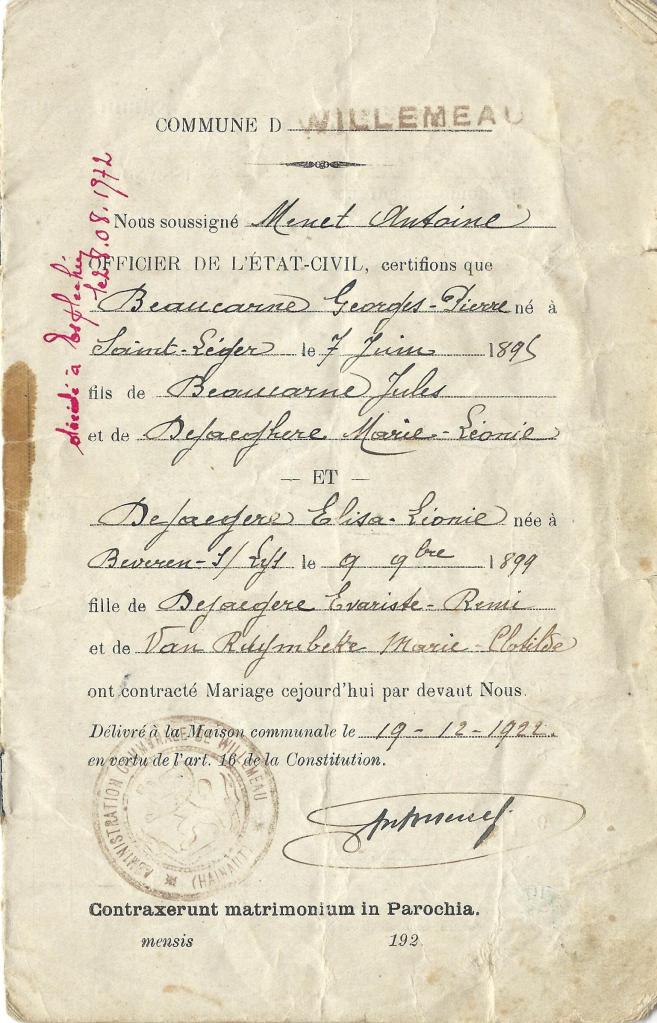 COMMUNE D WILLEMEAU
Nous soussigné Menet Antoine
OFFICIER DE L'ÉTAT-CIVIL, certifions que
Beaucarne Georges-Pierre né à
Saint-Léger le 7 Juin 1895
fils de Beaucarne Jules
et de Dejaeghere Marie-Léonie
— ET —
Dejaegere Elisa-Léonie née à
Beveren-s/Lys le 9 9bre 1899
fille de Dejaegere Evariste-Remi
et de Van Ruymbeke Marie-Clotilde
ont contracté Mariage cejourd'hui par devant Nous.
Délivré à la Maison communale le 19-12-1922.
en vertu de l'art. 16 de la Constitution.
ADMINISTRATION COMMUNALE DE WILLEMEAU
(HAINAUT)
Contraxerunt matrimonium in Parochia.
mensis 192
décédé à
08.1972